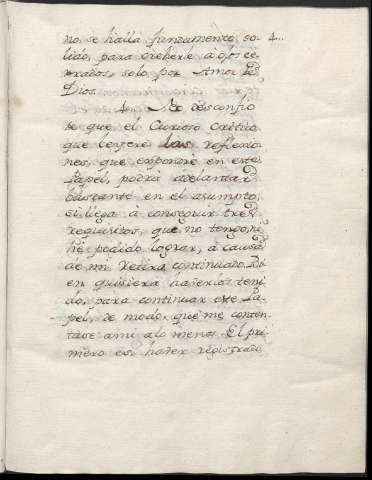 no se halla fundamento so- 4...
lido, para creherle à ojos ce-
rrados, solo por Amor de
Dios.
4. No desconfio
se que el Curioso Critico
que leyere las reflexio-
nes, que expondré en este
Papel, podrà adelantar
bastante en el asumpto,
si llega à conseguir tres
requisitos, que no tengo, ni
hé podido lograr, à causa
de mi retiro continuado. Bi-
en quisiera haverlos teni-
do, para continuar este Pa-
pel, de modo, que me conten-
tase ami alo menos. El pri-
mero es, haver registrado